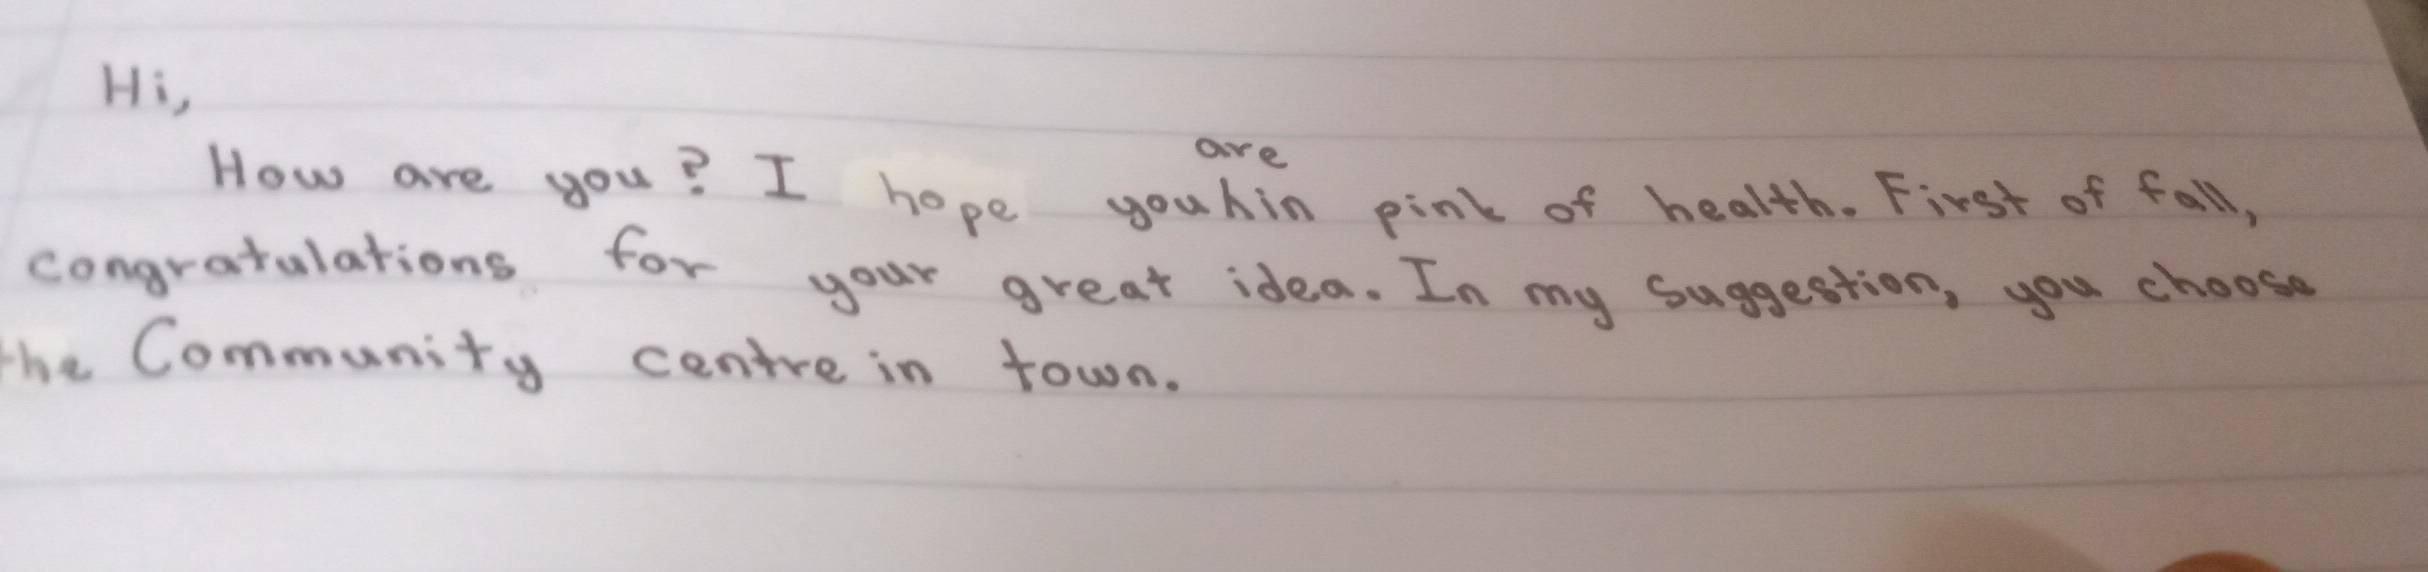 Hi,
How are you? I hope you are in pink of health. First of fall,
congratulations for your great idea. In my suggestion, you choose
the Community centre in town.